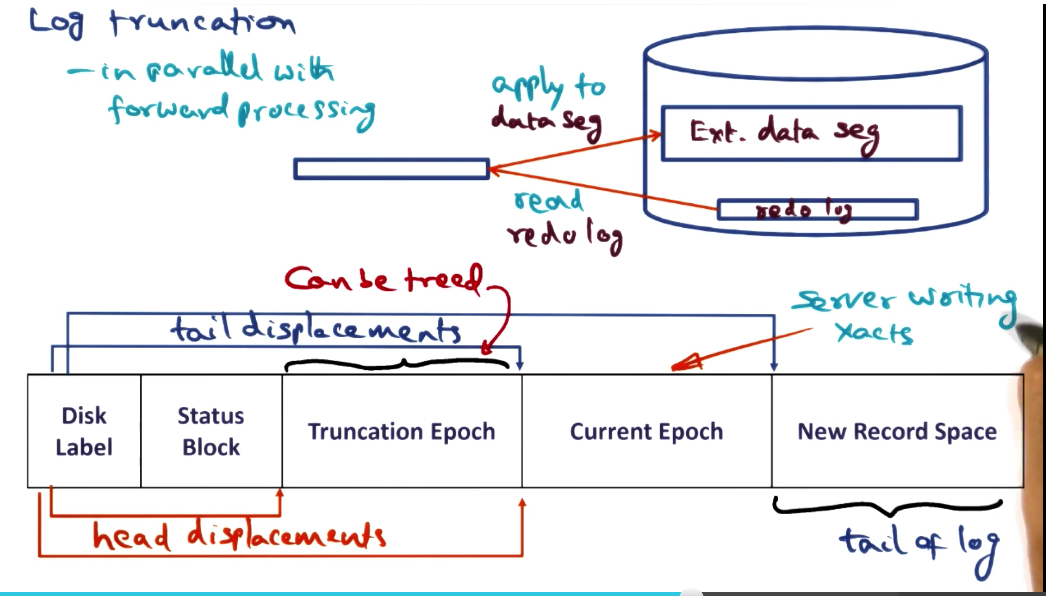 Log truncation
- in parallel with
forward processing
apply to
data seg
Ext. data seg
read
redo log
redo log
Can be freed
tail displacements
server writing
xacts
Disk
Label
Status
Block
Truncation Epoch
Current Epoch
New Record Space
head displacements
tail of log